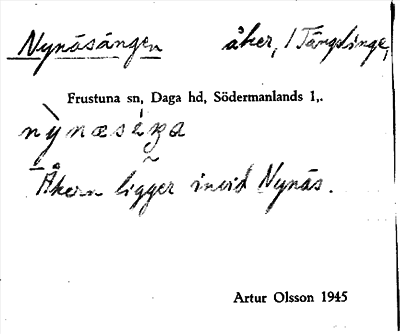 Nynäsängen åker, 1 Tängelinge,
Frustuna sn, Daga hd, Södermanlands l,.
nỳnæséŋa
Åkern ligger invid Nynäs.
Artur Olsson 1945